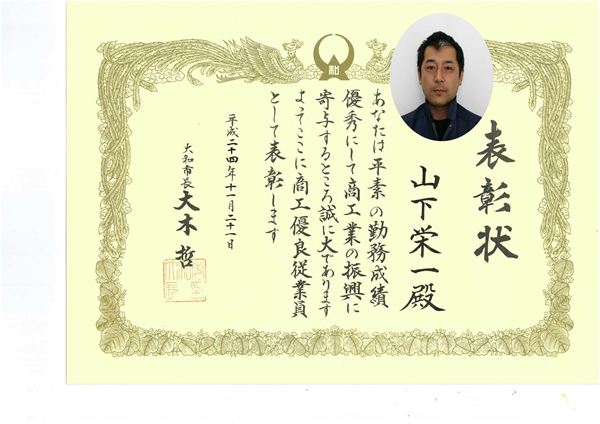 表彰状
山下栄一殿
あなたは平素の勤務成績
優秀にして商工業の振興に
寄与するところ誠に大であります
よってここに商工優良従業員
として表彰します
平成二十四年十一月二十一日
大和市長 大木 哲